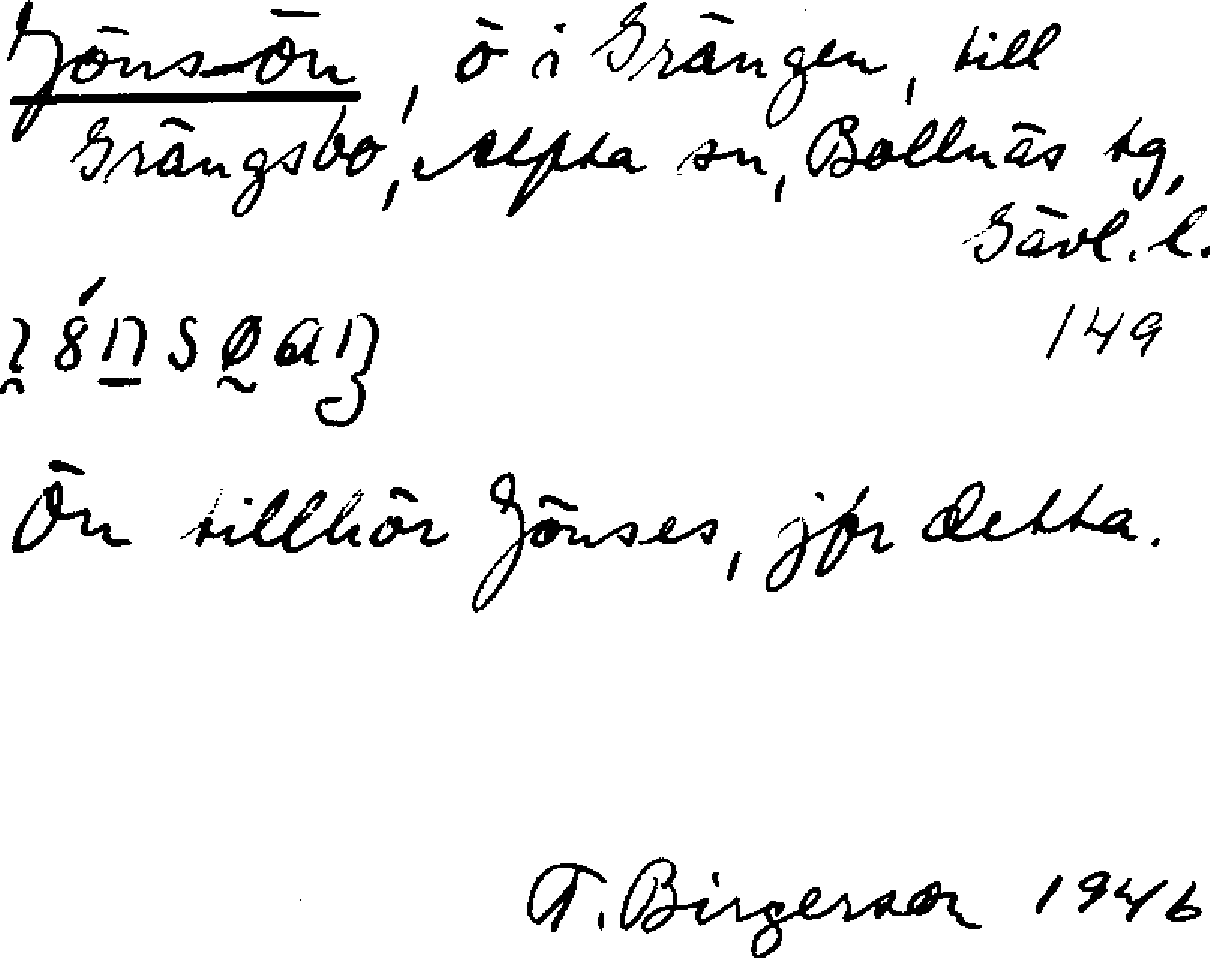 Jöns-Ön, ö i Grängen, till
Grängsbo, Alfta sn, Bollnäs tg,
Gävl. l.
149
Ön tillhör Jönses, jfr detta.
T. Birgerson 1946